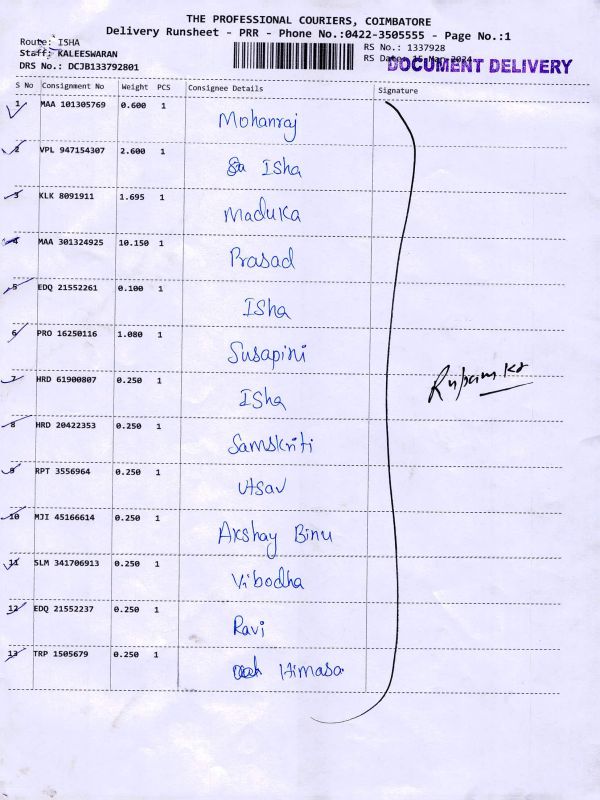 THE PROFESSIONAL COURIERS, COIMBATORE
Delivery Runsheet - PRR - Phone No.:0422-3505555 - Page No.:1
Route: ISHA
Staff: KALEESWARAN
DRS No.: DCJB133792801
RS No.: 1337928
RS Date: 15-Mar-2024
DOCUMENT DELIVERY
S No Consignment No Weight PCS Consignee Details Signature
1 MAA 101305769 0.600 1 Mohanraj
2 VPL 947154307 2.600 1 Isha
3 KLK 8091911 1.695 1 Maduka
4 MAA 301324925 10.150 1 Prasad
5 EDQ 21552261 0.100 1 Isha
6 PRO 16250116 1.080 1 Susapini
7 HRD 61900807 0.250 1 Isha
8 HRD 20422353 0.250 1 Samskriti
9 RPT 3556964 0.250 1 Utsav
10 MJI 45166614 0.250 1 Akshay Binu
11 SLM 341706913 0.250 1 Vibodha
12 EDQ 21552237 0.250 1 Ravi
13 TRP 1505679 0.250 1 Himasa